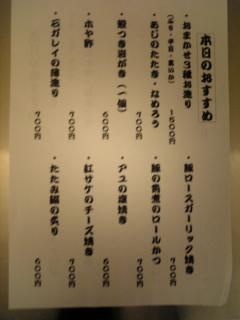 本日のおすすめ
・おまかせ3種お造り
1500円
・あじのたたき・なめろう
700円
・殻つき岩がき(一個)
600円
・ホヤ酢
700円
・石ガレイの薄造り
700円
・豚ロースガーリック焼き
700円
・豚の角煮のロールかつ
700円
・アユの塩焼き
600円
・紅サケのチーズ焼き
700円
・たたみ鰯の炙り
600円